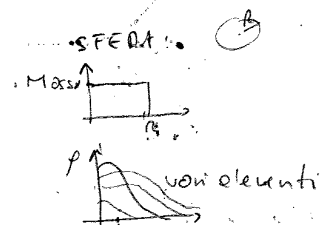 SFERA:
R
Massa
R
ρ
vari elementi